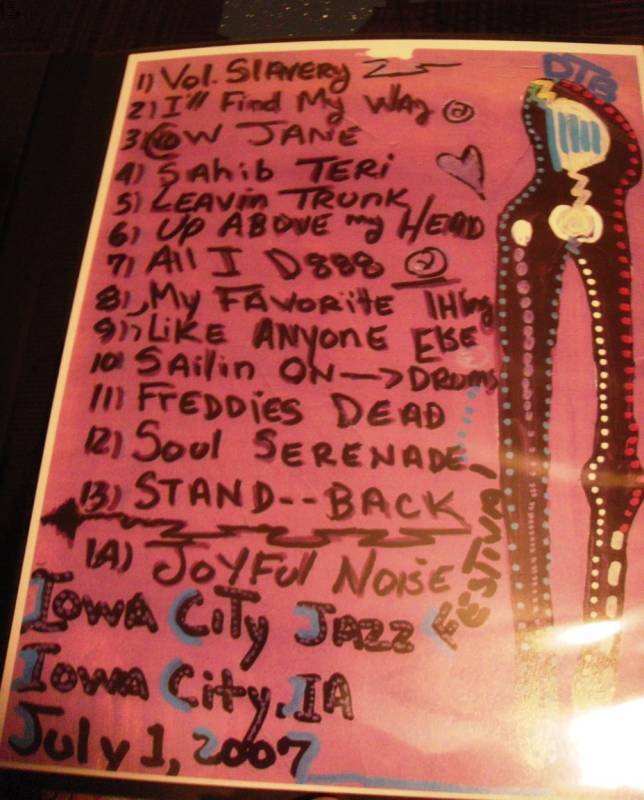 DTB
1) Vol. SlAVERY
2) I'll Find My WAy @
3) COW JANE
4) SAhib TERi
5) LEAVin TRUNK
6) UP ABOVE my HEAD
7) All I D888 @
8) My FAVORitE THing
9) LiKE ANYONE ElSE
10) SAilin ON --> DRUMS
11) FREDDIES DEAD
12) Soul SERENADE
13) STAND--BACK
1A) JOYFUl NOISE
Iowa City JAZZ FESTIVAl
Iowa City, IA
July 1, 2007